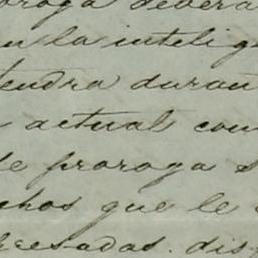 proroga deberá
en la intelig
tendrá duran
actual con
de proroga s
chos que le
presadas. dis